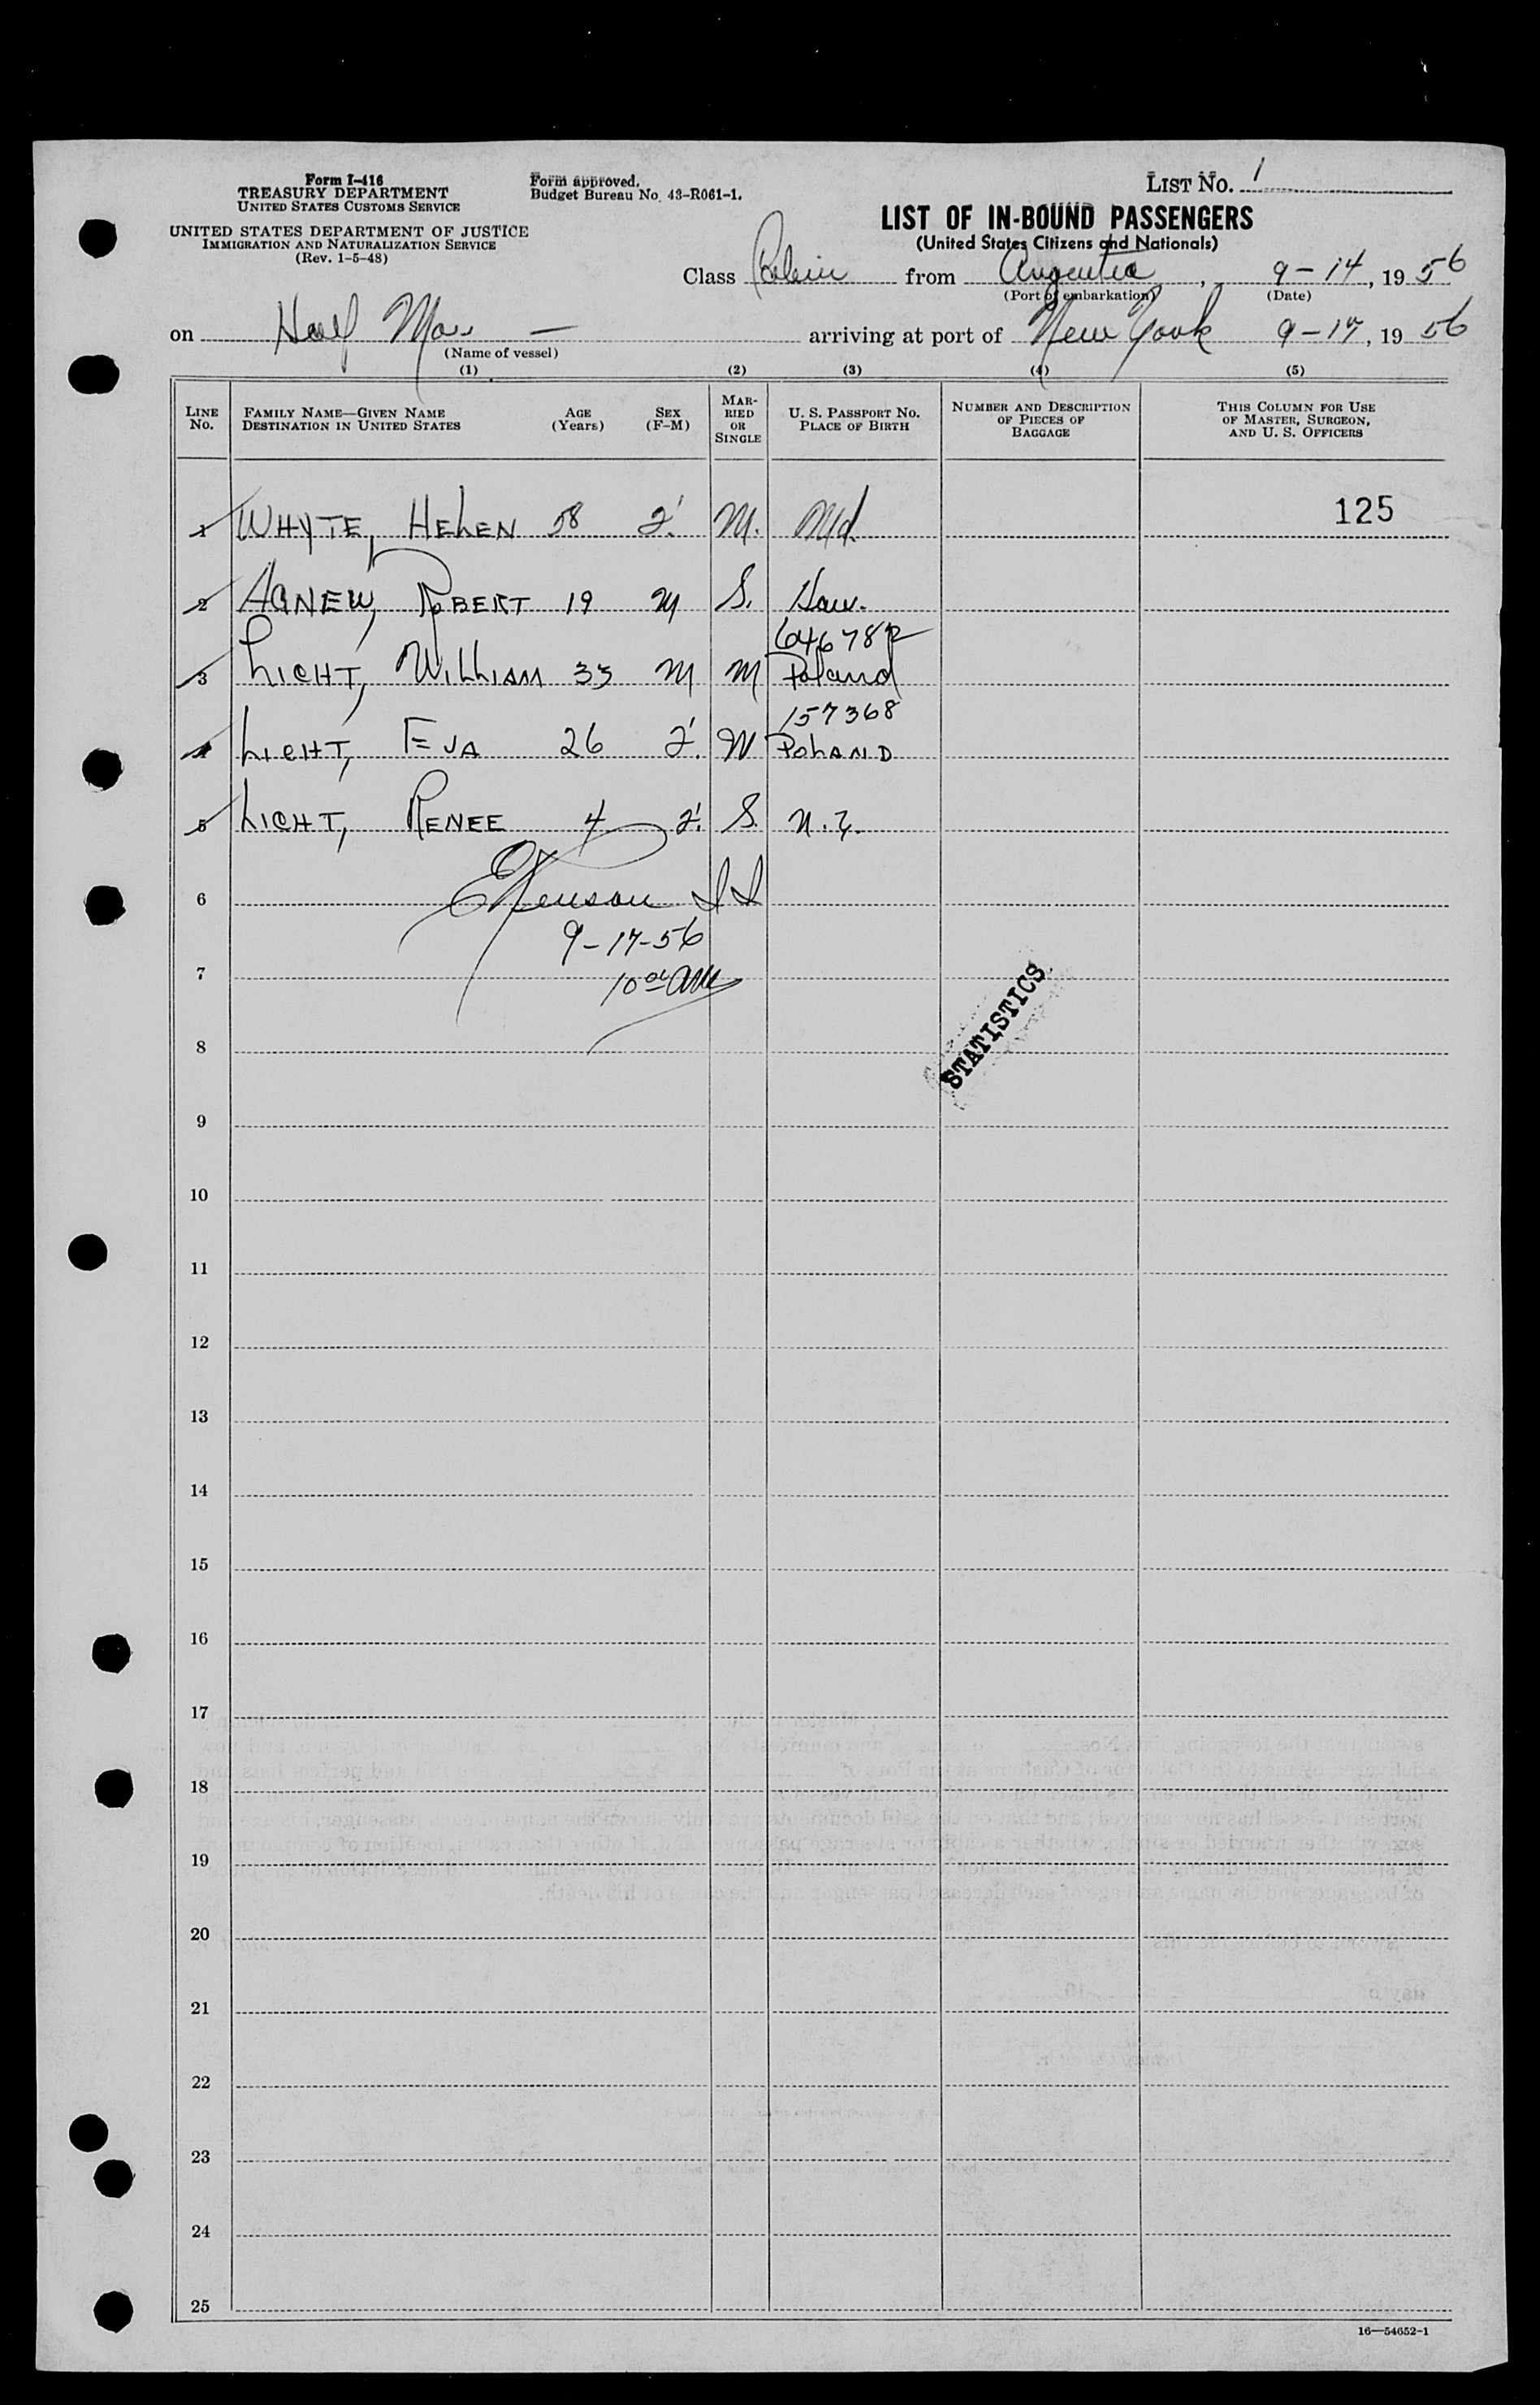 Form I-416
TREASURY DEPARTMENT
UNITED STATES CUSTOMS SERVICE
UNITED STATES DEPARTMENT OF JUSTICE
IMMIGRATION AND NATURALIZATION SERVICE
(Rev. 1-5-48)
Form approved.
Budget Bureau No. 43-R061-1.
LIST NO. 1
LIST OF IN-BOUND PASSENGERS
(United States Citizens and Nationals)
Class from Argentia, 9-14, 1956
(Port of embarkation) (Date)
on Half Moon — arriving at port of New York 9-17, 1956
(Name of vessel)
(1) (2) (3) (4) (5)
LINE No. FAMILY NAME—GIVEN NAME DESTINATION IN UNITED STATES AGE (Years) SEX (F-M) MARRIED OR SINGLE U. S. PASSPORT NO. PLACE OF BIRTH NUMBER AND DESCRIPTION OF PIECES OF BAGGAGE THIS COLUMN FOR USE OF MASTER, SURGEON, AND U. S. OFFICERS
1 WHYTE, HELEN 58 F. M. Md. 125
2 AGNEW, ROBERT 19 M S. Haw.
646782
3 LICHT, WILLIAM 33 M M Poland
157368
4 LICHT, EVA 26 F. M POLAND
5 LICHT, RENEE 4 F. S. N.Y.
6
9-17-56
7
10 00 AM
STATISTICS
8
9
10
11
12
13
14
15
16
17
18
19
20
21
22
23
24
25
16—54652-1